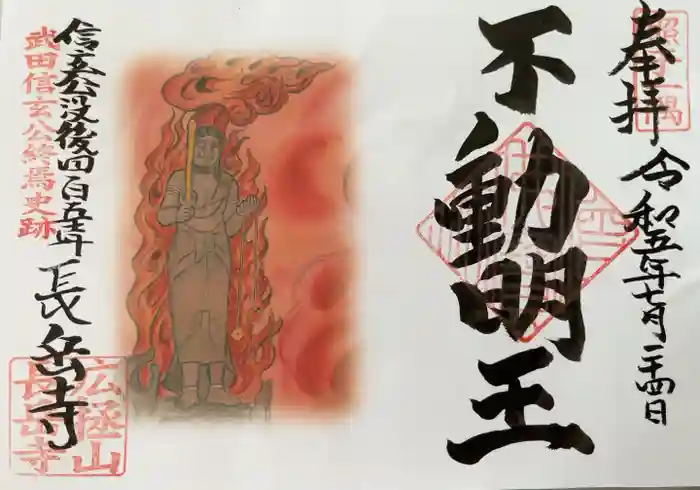 奉拝
令和五年七月二十四日
照一隅
不動明王
信玄公没後四百五十年
武田信玄公終焉史跡
長岳寺
広拯山
長岳寺